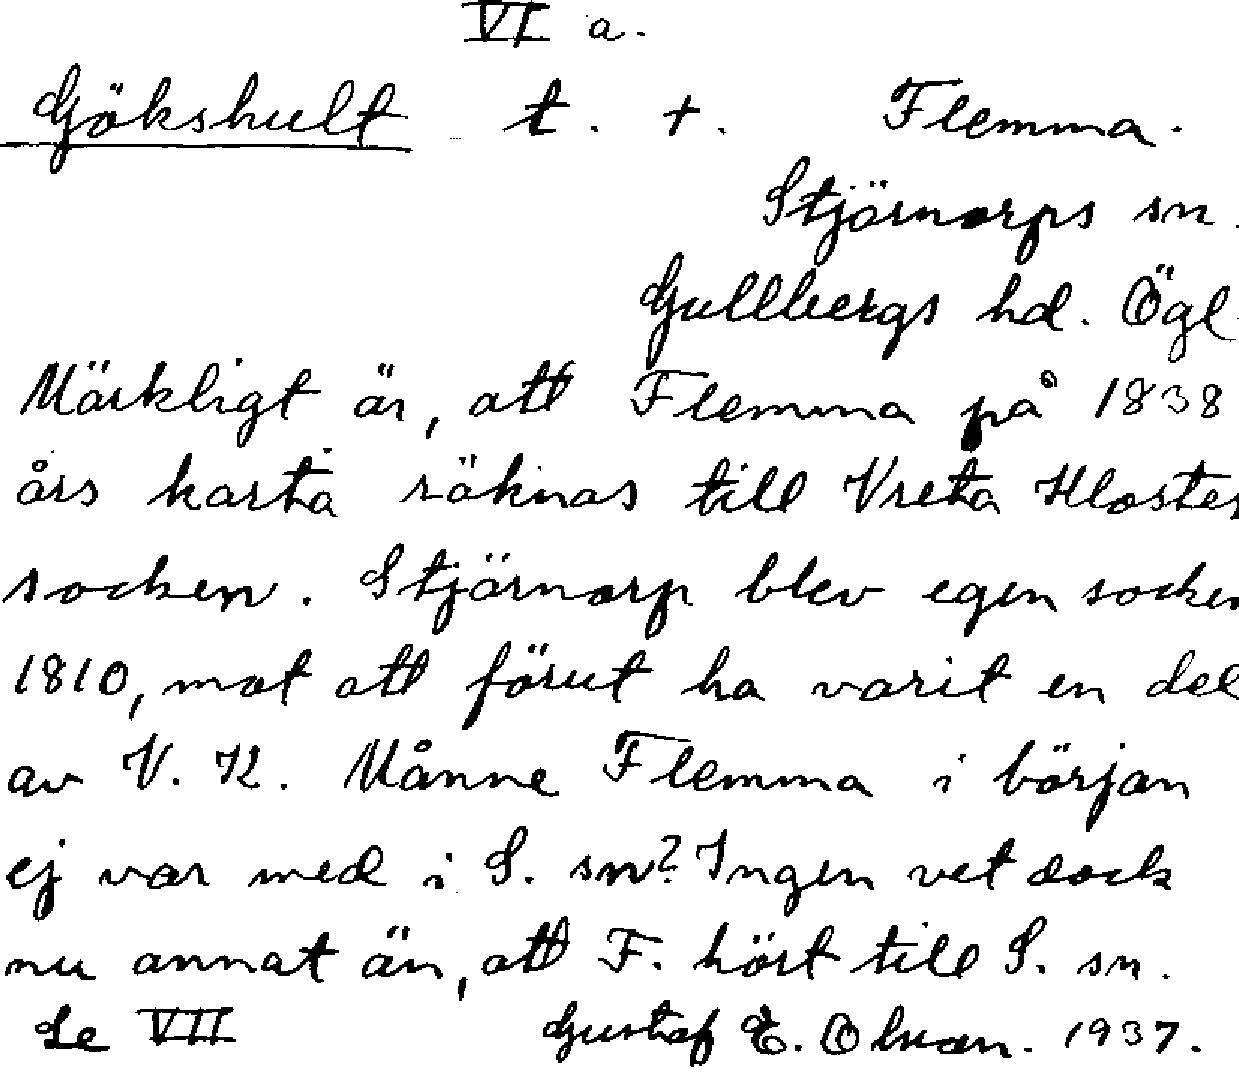 VI a.
Gökshult t. +. Flemma.
Stjärnorps sn.
Gullbergs hd. Ögl.
Märkligt är, att Flemma på 1838
års karta räknas till Vreta Kloster
socken. Stjärnorp blev egen socken
1810, mot att förut ha varit en del
av V. K. Månne Flemma i början
ej var med i S. sn? Ingen vet dock
nu annat än, att F. hört till S. sn.
Se VII Gustaf E. Olson. 1937.